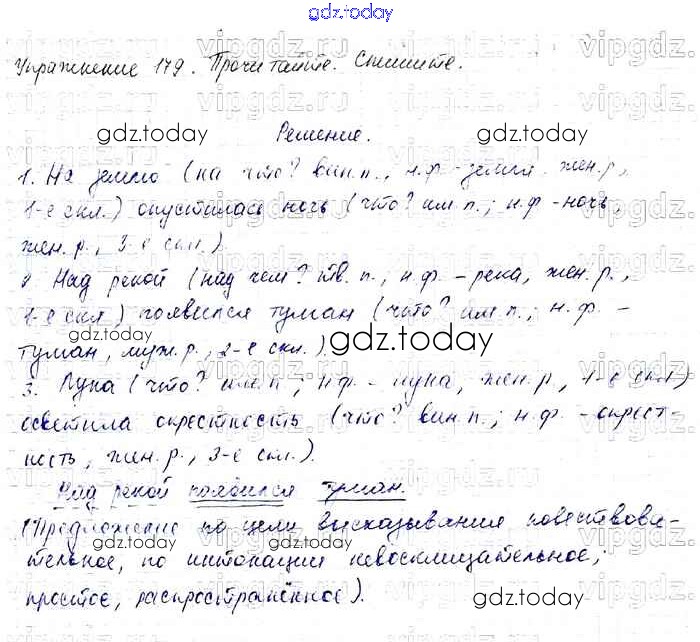 gdz.today
Упражнение 179. Прочитайте. Спишите.
Решение.
1. На землю (на что? вин.п., н.ф - земля. жен.р.,
1-е скл.) опустилась ночь (что? им.п.; н.ф - ночь,
жен.р., 3-е скл.).
2. Над рекой (над чем? тв.п., н.ф. - река, жен.р.,
1-е скл.) появился туман (что? им.п.; н.ф. -
туман, муж.р., 2-е скл.).
3. Луна (что? им.п.; н.ф. - луна, жен.р, 1-е скл.)
осветила окрестность (что? вин.п.; н.ф. - окрест-
ность, жен.р., 3-е скл.).
Над рекой появился туман.
(Предложение по цели высказывания повествова-
тельное, по интонации невосклицательное;
простое, распространённое).
gdz.today
gdz.today
gdz.today
gdz.today
gdz.today
gdz.today
gdz.today
gdz.today